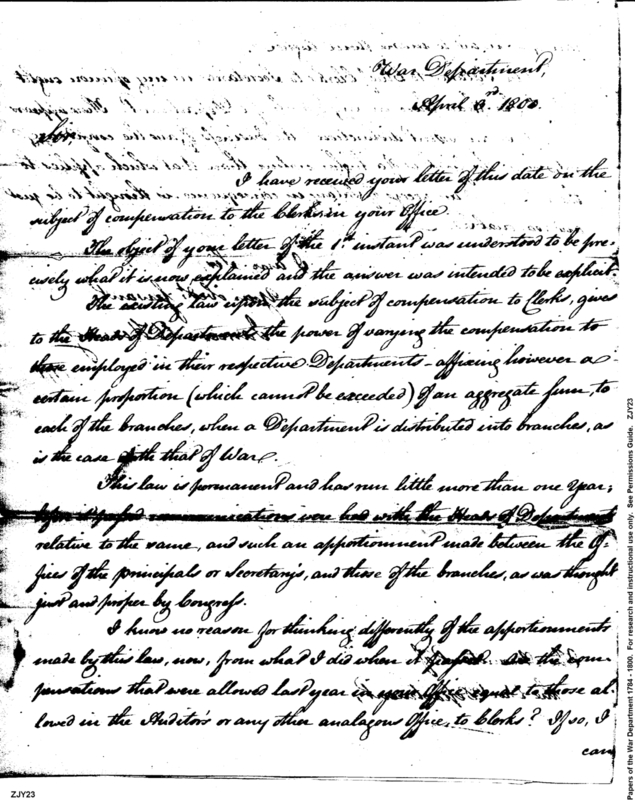 War Department,
April 3rd. 1800
Sir,
I have received your letter of this date on the
subject of compensation to the Clerks in your Office
The object of your letter of the 1st. instant was understood to be pre-
cisely what it is now explained and the answer was intended to be explicit.
The existing law upon the subject of compensation to Clerks, gives
to the Heads of Departments the power of varying the compensation to
those employed in their respective Departments - affixing however a
certain proportion (which cannot be exceeded) of an aggregate sum, to
each of the branches, when a Department is distributed into branches, as
is the case with that of War.
This law is permanent and has run little more than one Year;
before it passed communications were had with the Heads of Departments
relative to the same, and such an apportionment made between the Of-
fices of the principals or Secretary's, and those of the branches, as was thought
just and proper by Congress.
I know no reason for thinking differently of the apportionments
made by this law, now, from what I did when it passed. the com-
pensations that were allowed last year in your Office equal to those al-
lowed in the Auditor's or any other analagous Office, to Clerks? If so, I
can
ZJY23
Papers of the War Department 1784 - 1800. For research and instructional use only. See Permissions Guide. ZJY23